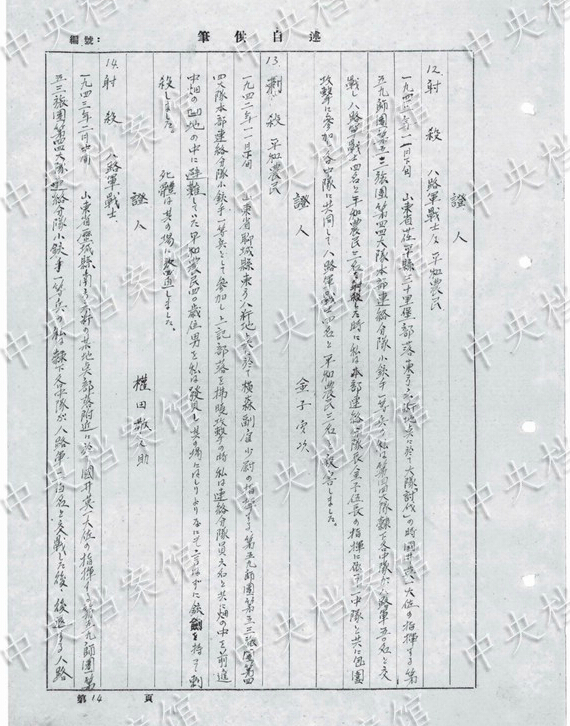 編號：
述自供筆
證人
12. 射殺　八路軍戰士及平和農民
一九四二年一一月下旬　山東省茌平縣三十里堡部落東方
大隊討伐の時國井英一大位の指揮する第
五九師團第五三旅團第四四大隊本部連絡分隊小銃手一等兵の私は第四四大隊隷下各中隊が八路軍五〇名と交
戰し八路軍戰士四名と平和農民三名を射殺した時に私は本部連絡分隊長金子伍長の指揮に依り一中隊と共に包圍
攻擊に參加し各中隊と共同して八路軍戰士四名と平和農民三名を殺害しました。
證人　金子
13. 刺殺　平和農民
一九四二年一一月下旬　山東省聊城縣東方八新地
に於て横森副官少尉の指揮する第五九師團第五三旅團第四
四大隊本部連絡分隊小銃手一等兵として參加し上記部落を拂曉攻擊の時私は連絡分隊員六名と共に畑の中を前進
中畑の凹地の中に避難していた平和農民四〇歳位男を私は發見し其の場に
銃劍を持て刺
殺しました。　死體は其の場に放置しました。
證人　権田敬之助
14. 射殺　八路軍戰士
一九四三年二月中旬　山東省歴城縣南方
の某地点部落附近に於て國井英一大位の指揮する第五九師團第
五三旅團第四四大隊連絡分隊小銃手一等兵の私は隷下各中隊が八路軍一百名と交戰した後、後退する八路
第14頁
中央档案馆